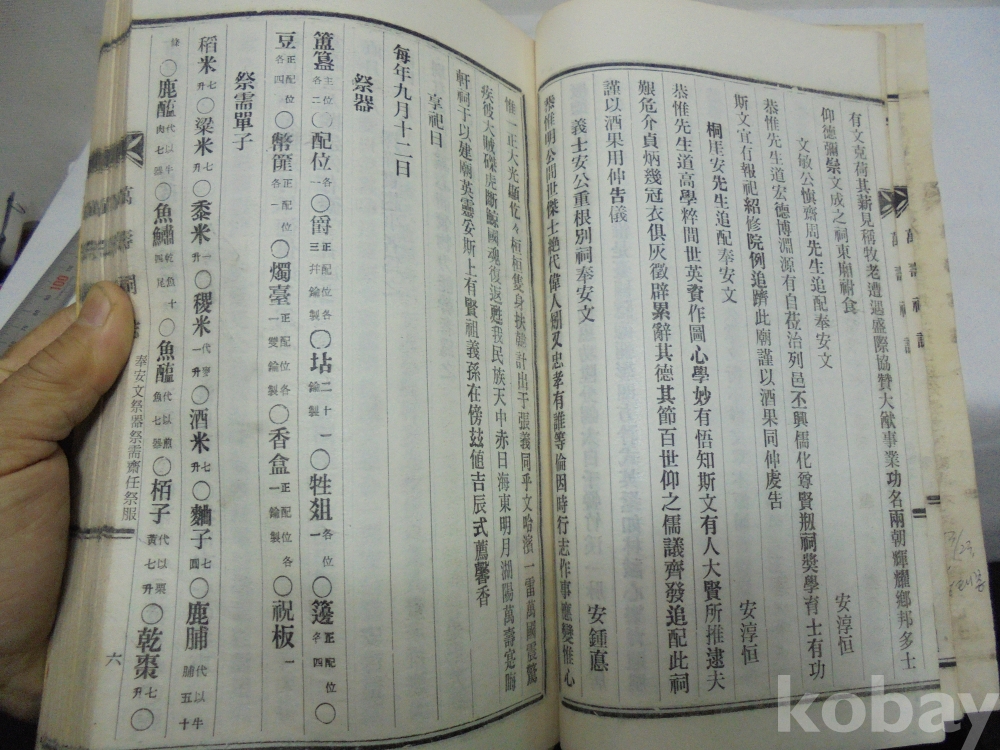 有文克荷其薪見稱牧老遭遇盛際協贊大猷事業功名兩朝輝耀鄉邦多士
仰德彌崇文成之祠東廟躋食
安淳恒
文敏公愼齋周先生追配奉安文
恭惟先生道宏德博淵源有自莅治列邑丕興儒化尊賢刱祠奬學育士有功
斯文宜有報祀紹修院例追躋此廟謹以酒果同伸虔告
安淳恒
桐厓安先生追配奉安文
恭惟先生道高學粹間世英資作圖心學妙有悟知斯文有人大賢所推逮夫
艱危介貞炳幾冠衣俱灰徵辟累辭其德其節百世仰之儒議齊發追配此祠
謹以酒果用伸告儀
安鍾悳
義士安公重根別祠奉安文
恭惟明公間世傑士絶代偉人刱又忠孝有誰等倫因時行志作事應變惟心
惟一正大光顯化々桓桓隻身扶 計出于張義同乎文哈濱一雷萬國震驚
疾彼大賊磔虎斷鯨國魂復返甦我民族天中赤日海東明月湖陽萬壽宛晦
軒祠于以建廟英靈妥斯上有賢祖義孫在傍玆値吉辰式薦馨香
享祀日
每年九月十二日
祭器
簠簋主位各二〇配位各一〇爵正配位各三幷鍮製〇坫二十一鍮製〇牲俎各位一〇籩正配位各四〇
豆正配位各四〇幣篚正配位各一〇燭臺正配位各一雙鍮製〇香盒正配位各一鍮製〇祝板一
祭需單子
稻米七升〇粱米七升〇黍米一升〇稷米代一升〇酒米七升〇麯子七圓〇鹿脯代以牛脯五十
條〇鹿醢代以牛肉七器〇魚鱐乾魚十四尾〇魚醢代以煎魚七器〇栢子代以栗黃七升〇乾棗七升〇
萬壽祠
奉安文祭器祭需齋任祭服
六
萬壽祠誌
kobay
100